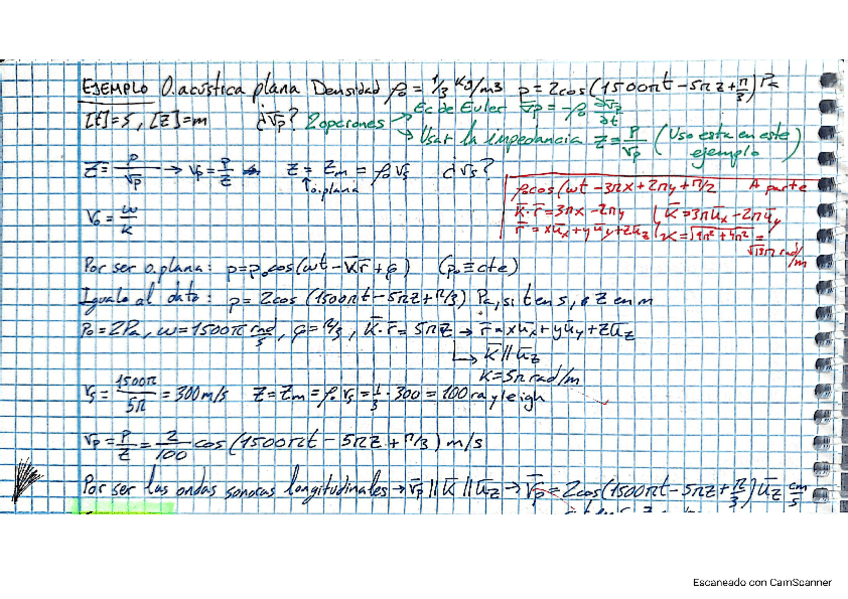 EJEMPLO O. acústica plana Densidad ρ₀ = 1/3 Kg/m3 p = 2cos(1500πt - 5πz + π/3) Pa
[t]=s, [z]=m ¿v̄p? 2 opciones → Ec de Euler ∇p = -ρ₀ ∂v̄p/∂t
→ Usar la impedancia Z = p/vp (Uso esta en este ejemplo)
Z = p/vp → vp = p/Z Z = Zm = ρ₀ vs ¿vs?
↑ o. plana
vs = ω/k
p₀cos(ωt - 3πx + 2πy + π/2 A parte
k̄·r̄ = 3πx - 2πy k̄ = 3πūx - 2πūy
r̄ = xūx + yūy + zūz k = √(9π² + 4π²) = √13π rad/m
Por ser o. plana: p = p₀cos(ωt - k̄r̄ + φ) (p₀ ≡ cte)
Igualo al dato: p = 2cos(1500πt - 5πz + π/3) Pa, si t en s, z en m
p₀ = 2Pa, ω = 1500π rad/s, φ = π/3, k̄·r̄ = 5πz → r̄ = xūx + yūy + zūz
↳ k̄ ∥ ūz
k = 5π rad/m
vs = 1500π/5π = 300 m/s Z = Zm = ρ₀ vs = 1/3 · 300 = 100 rayleigh
vp = p/Z = 2/100 cos(1500πt - 5πz + π/3) m/s
Por ser las ondas sonoras longitudinales → v̄p ∥ k̄ ∥ ūz → v̄p = 2cos(1500πt - 5πz + π/3) ūz cm/s
Escaneado con CamScanner